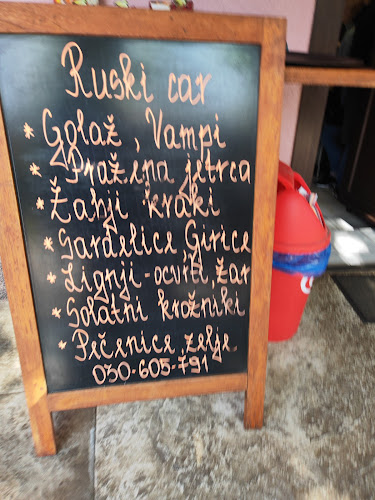 Ruski car
* Golaž, Vampi
* Pražena jetrca
* Žabji kraki
* Sardelice, Girice
* Lignji - ocvrti, žar
* Solatni krožniki
* Pečenice, zelje
030-605-791